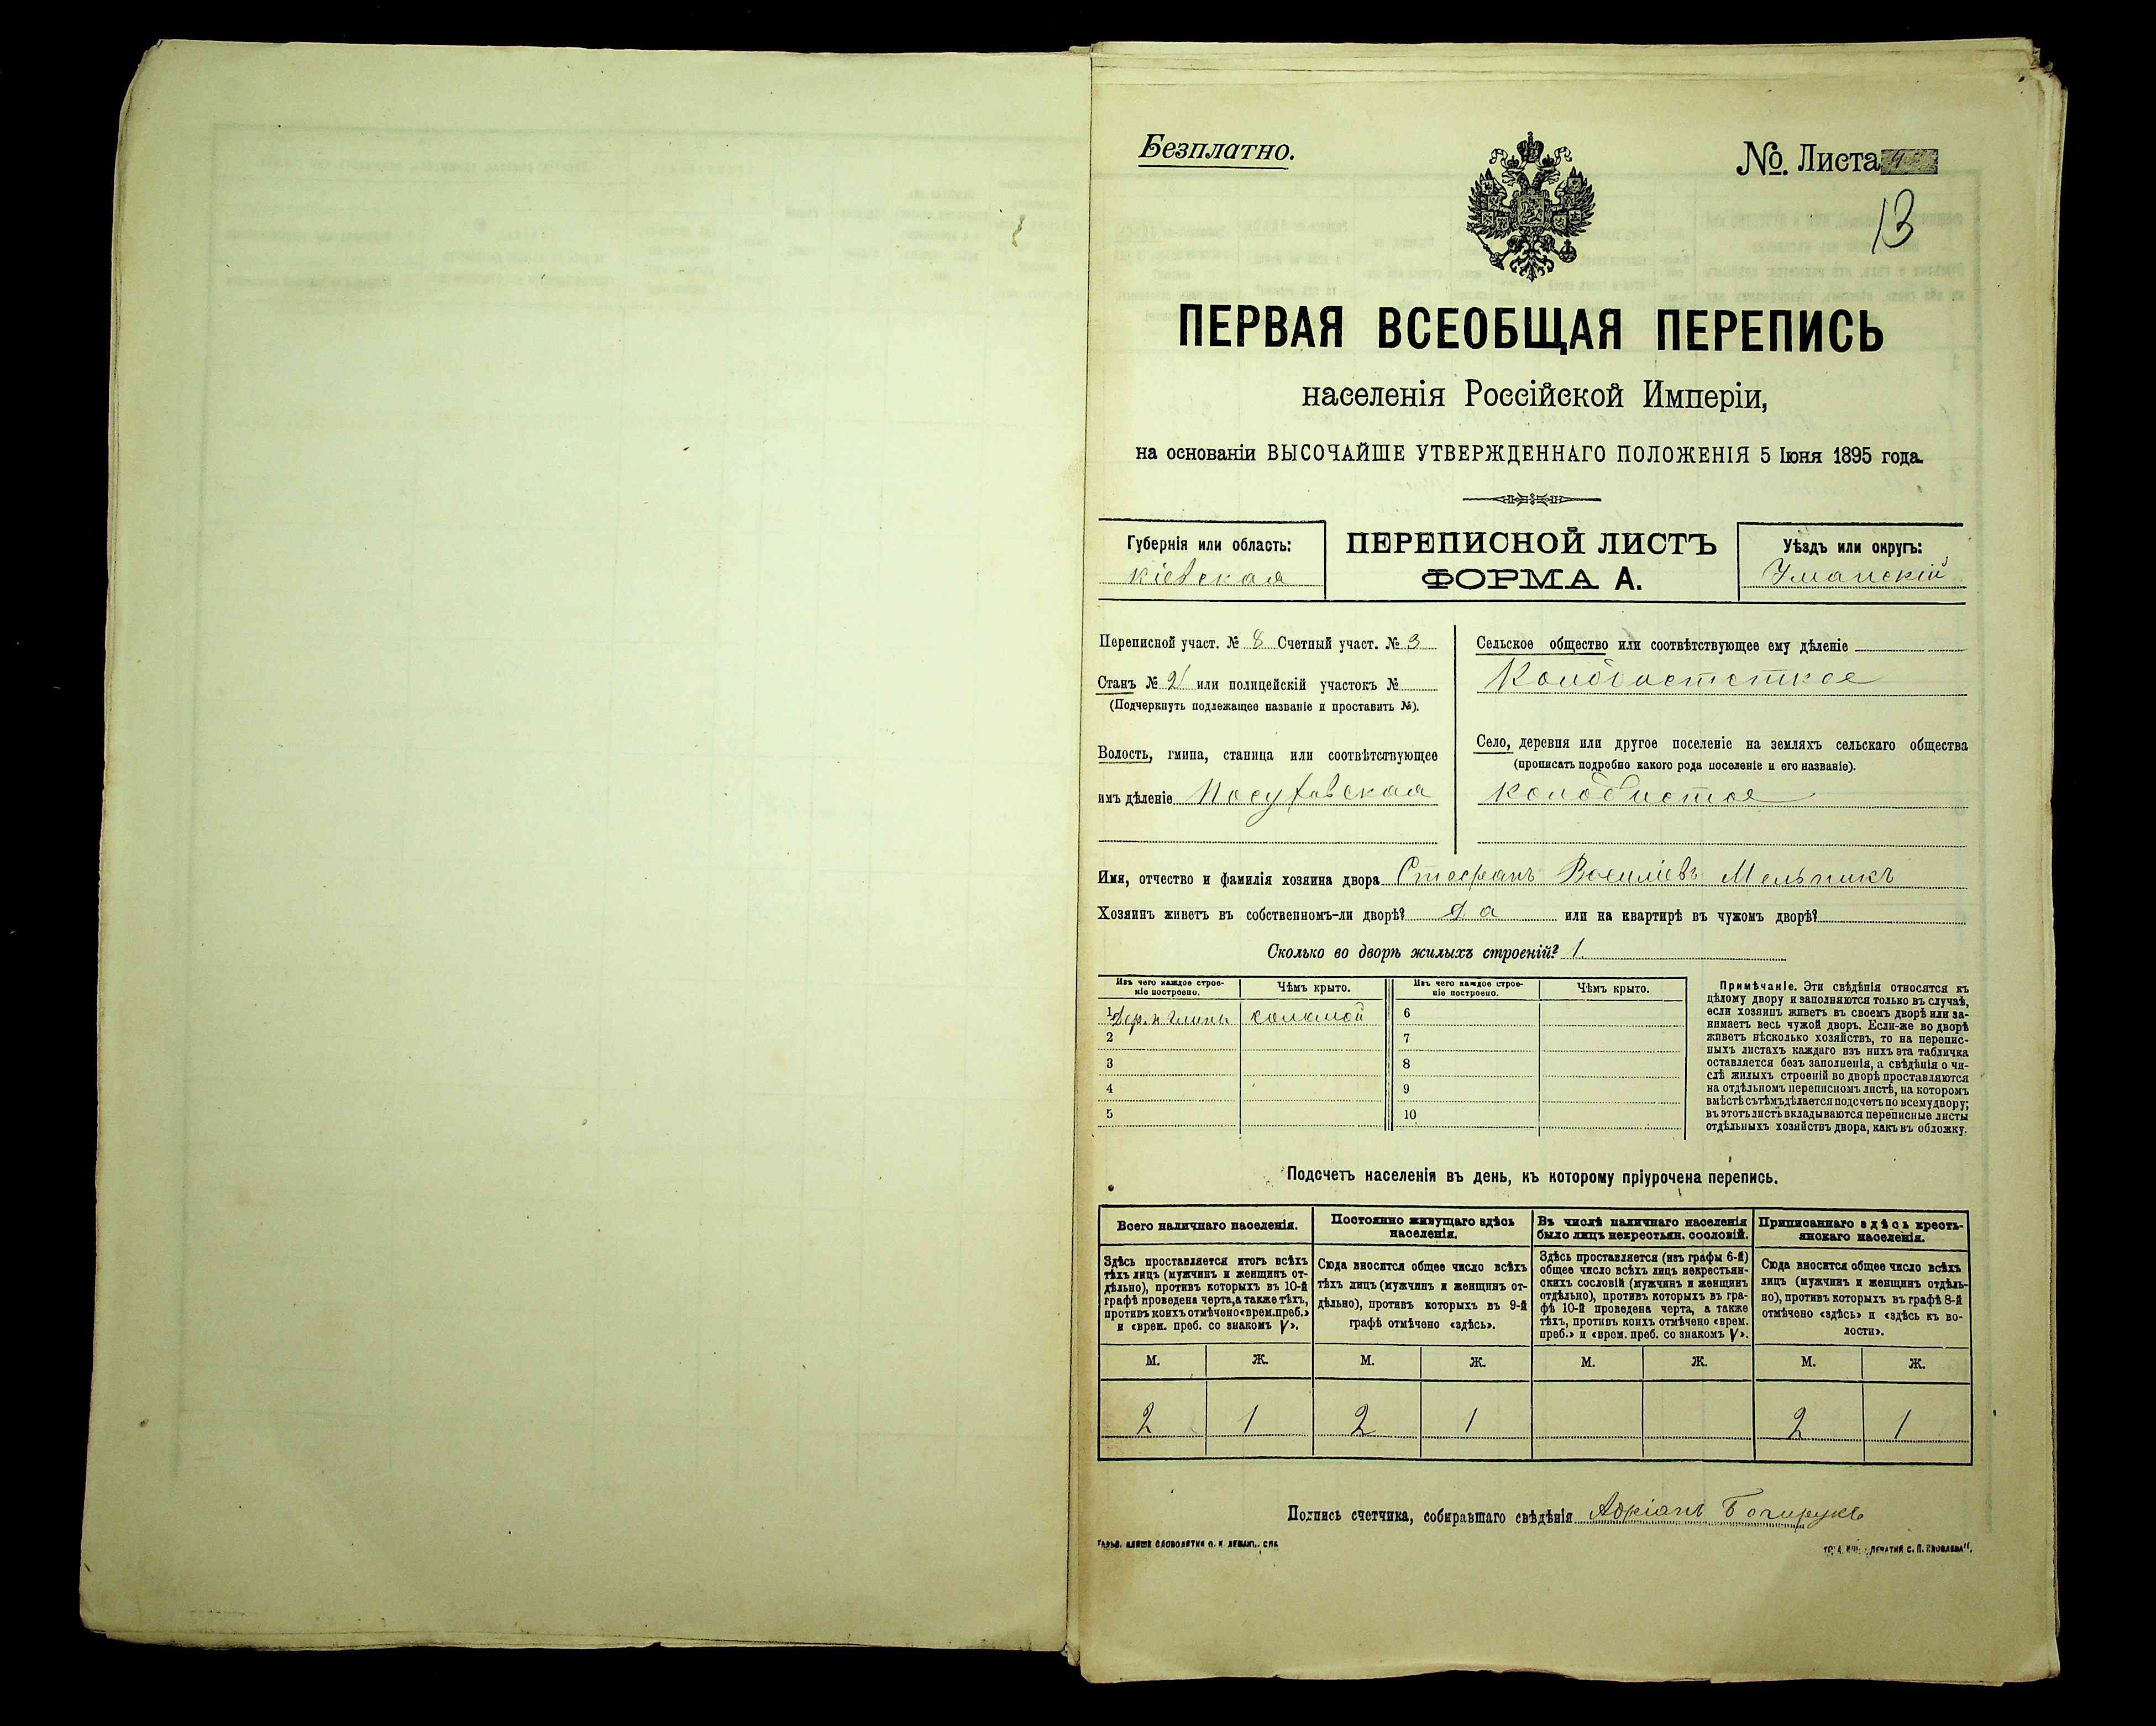 Безплатно.
№ Листа
13
ПЕРВАЯ ВСЕОБЩАЯ ПЕРЕПИСЬ
населенія Россійской Имперіи,
на основаніи ВЫСОЧАЙШЕ УТВЕРЖДЕННАГО ПОЛОЖЕНІЯ 5 Іюня 1895 года.
Губернія или область:
Кіевская
ПЕРЕПИСНОЙ ЛИСТЪ
ФОРМА А.
Уѣздъ или округъ:
Уманскій
Переписной участ. № 8 Счетный участ. № 3
Станъ № 2 или полицейскій участокъ №
(Подчеркнуть подлежащее названіе и проставить №).
Волость, гмина, станица или соотвѣтствующее
имъ дѣленіе Посуховская
Сельское общество или соотвѣтствующее ему дѣленіе
Колодистское
Село, деревня или другое поселеніе на земляхъ сельскаго общества
(прописать подробно какого рода поселеніе и его названіе).
Колодистое
Имя, отчество и фамилія хозяина двора Стефанъ Василіевъ Мельникъ
Хозяинъ живетъ въ собственномъ-ли дворѣ? Да или на квартирѣ въ чужомъ дворѣ?
Сколько во дворѣ жилыхъ строеній? 1.
Изъ чего каждое строе-
ніе построено.
Чѣмъ крыто.
Изъ чего каждое строе-
ніе построено.
Чѣмъ крыто.
1 Дер. и глины соломой 6
2 7
3 8
4 9
5 10
Примѣчаніе. Эти свѣдѣнія относятся къ
цѣлому двору и заполняются только въ случаѣ,
если хозяинъ живетъ въ своемъ дворѣ или за-
нимаетъ весь чужой дворъ. Если-же во дворѣ
живетъ нѣсколько хозяйствъ, то на перепис-
ныхъ листахъ каждаго изъ нихъ эта табличка
оставляется безъ заполненія, а свѣдѣнія о чи-
слѣ жилыхъ строеній во дворѣ проставляются
на отдѣльномъ переписномъ листѣ, на которомъ
вмѣстѣ съ тѣмъ дѣлается подсчетъ по всему двору;
въ этотъ листъ вкладываются переписные листы
отдѣльныхъ хозяйствъ двора, какъ въ обложку.
Подсчетъ населенія въ день, къ которому пріурочена перепись.
Всего наличнаго населенія.
Постоянно живущаго здѣсь
населенія.
Въ числѣ наличнаго населенія
было лицъ некрестьян. сословій.
Приписаннаго здѣсь кресть-
янскаго населенія.
Здѣсь проставляется итогъ всѣхъ
тѣхъ лицъ (мужчинъ и женщинъ от-
дѣльно), противъ которыхъ въ 10-й
графѣ проведена черта, а также тѣхъ,
противъ коихъ отмѣчено «врем. преб.»
и «врем. преб. со знакомъ V».
Сюда вносится общее число всѣхъ
тѣхъ лицъ (мужчинъ и женщинъ от-
дѣльно), противъ которыхъ въ 9-й
графѣ отмѣчено «здѣсь».
Здѣсь проставляется (изъ графы 6-й)
общее число всѣхъ лицъ некрестьян-
скихъ сословій (мужчинъ и женщинъ
отдѣльно), противъ которыхъ въ гра-
фѣ 10-й проведена черта, а также
тѣхъ, противъ коихъ отмѣчено «врем.
преб.» и «врем. преб. со знакомъ V».
Сюда вносится общее число всѣхъ
лицъ (мужчинъ и женщинъ отдѣль-
но), противъ которыхъ въ графѣ 8-й
отмѣчено «здѣсь» и «здѣсь къ во-
лости».
М. Ж. М. Ж. М. Ж. М. Ж.
2 1 2 1 2 1
Подпись счетчика, собиравшаго свѣдѣнія Адріанъ